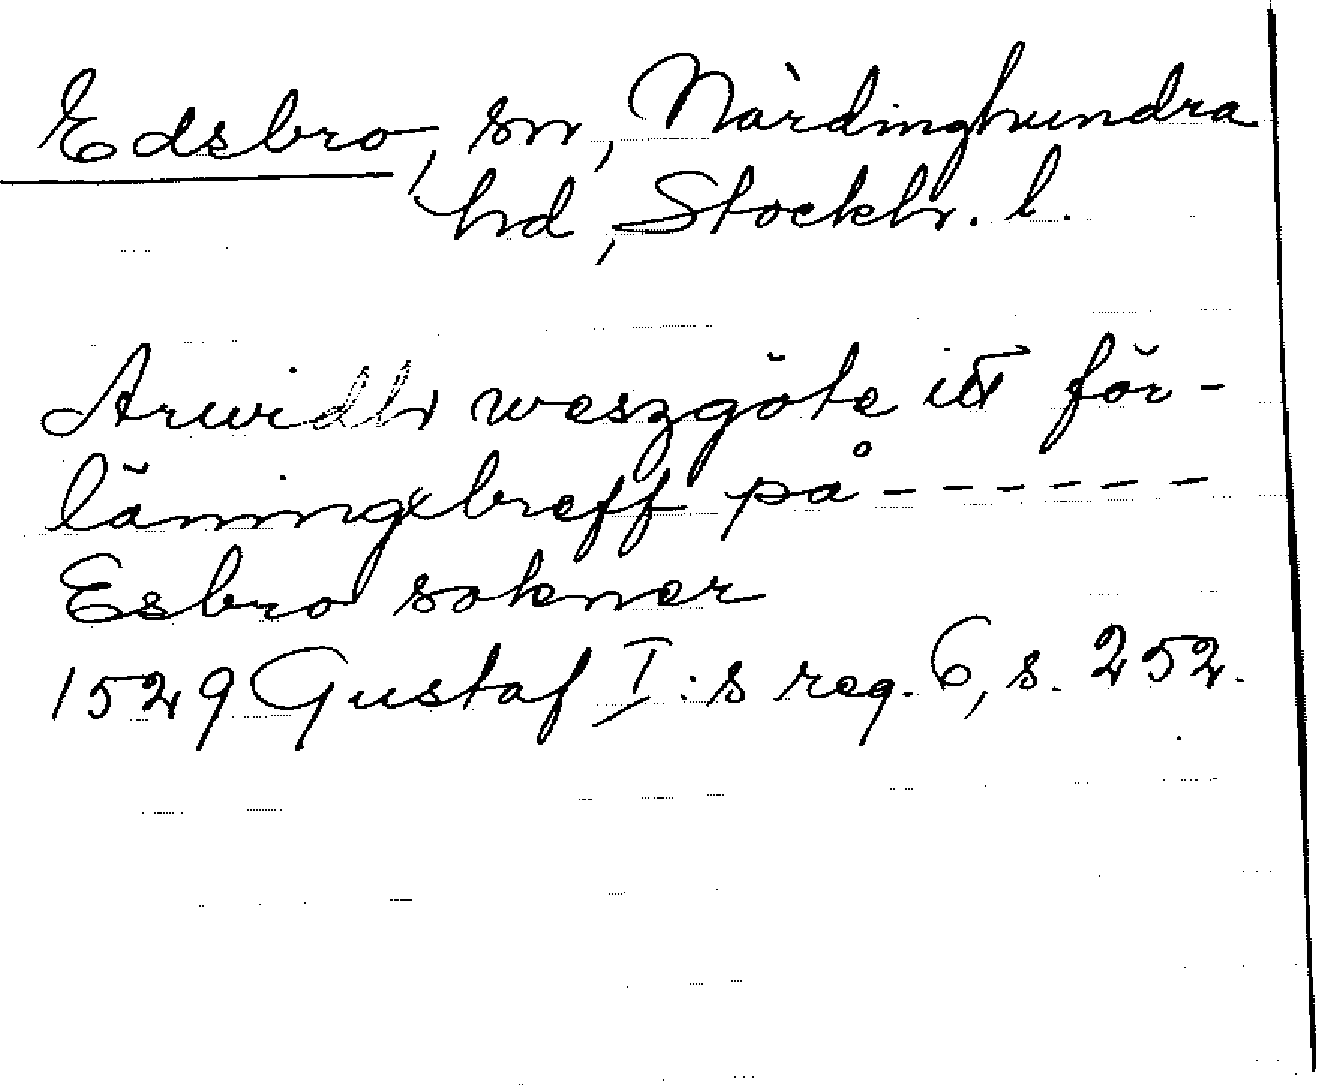 Edsbro, sn, Närdinghundra
hd, Stockh. l.
Arwidh weszgöte itt för-
läningebreff på - - - - - -
Esbro sokner
1529 Gustaf I:s reg. 6, s. 252.